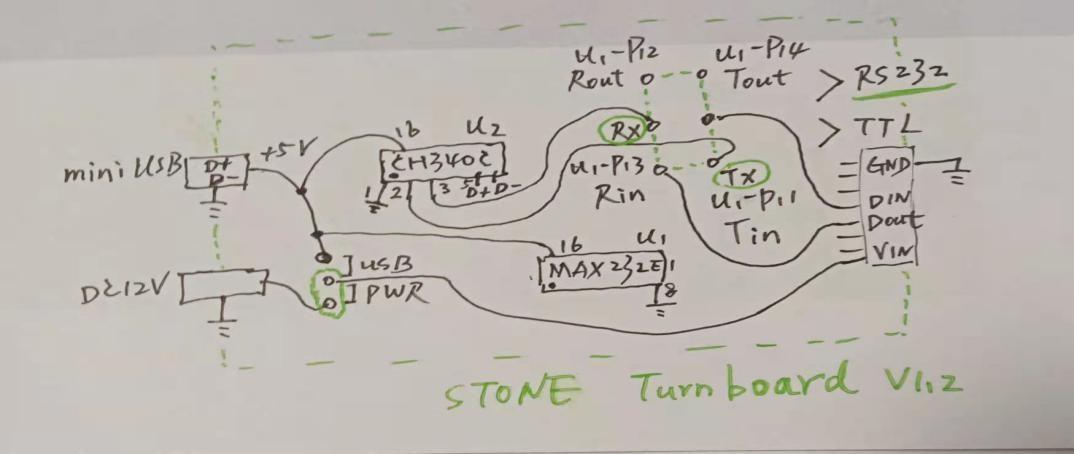 U1-P12
U1-P14
Rout
Tout
> RS232
16
U2
RX
> TTL
mini USB
D+
D-
+5V
CH340C
1
2
3
D+ D-
U1-P13
Rin
TX
U1-P11
Tin
GND
DIN
Dout
VIN
16
U1
MAX232E
1
8
DC12V
USB
PWR
STONE Turnboard V1.2